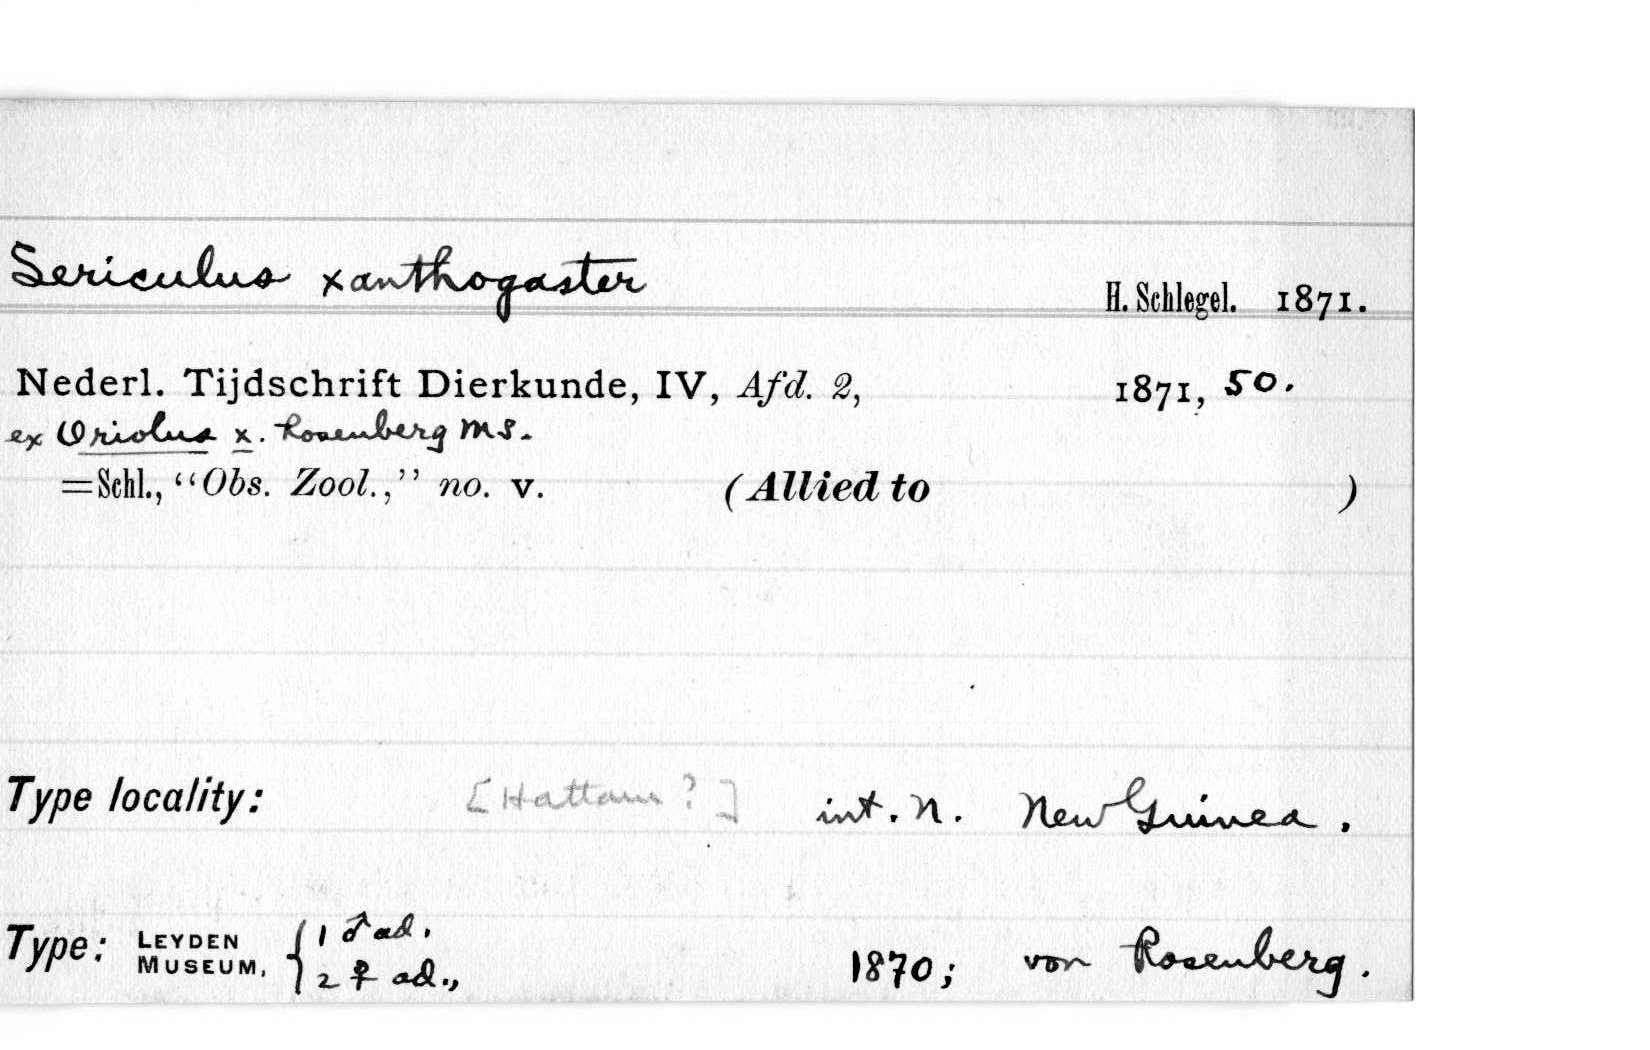 Sericulus xanthogaster H. Schlegel. 1871.
Nederl. Tijdschrift Dierkunde, IV, Afd. 2, 1871, 50.
ex Oriolus x. Rosenberg MS.
=Schl., “Obs. Zool.,” no. v. (Allied to )
Type locality: [Hattam ?] int. N. New Guinea.
Type: LEYDEN MUSEUM, { 1 ♂ ad.
2 ♀ ad., 1870; von Rosenberg.